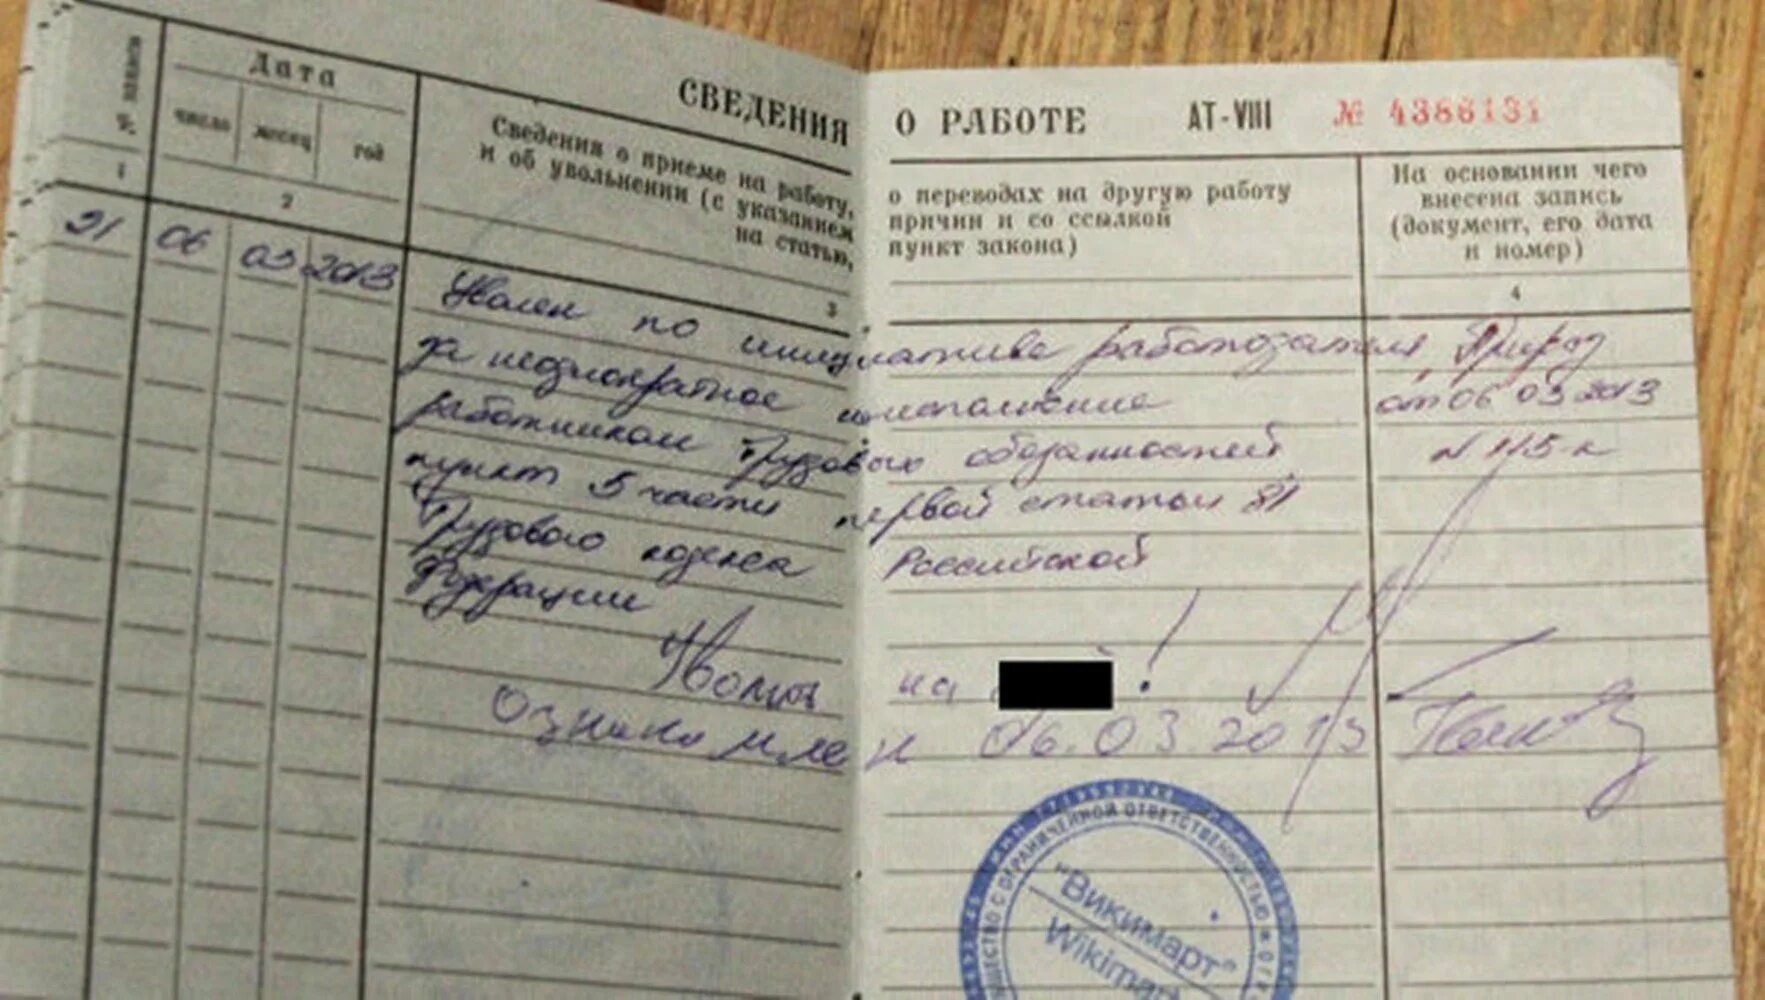 СВЕДЕНИЯ О РАБОТЕ АТ-VIII № 4386131
№ записи
Дата
число месяц год
Сведения о приеме на работу, о переводах на другую работу
и об увольнении (с указанием причин и со ссылкой
на статью, пункт закона)
На основании чего
внесена запись
(документ, его дата
и номер)
1 2 3 4
21 06 03 2013 Уволен по инициативе работодателя
за неоднократное неисполнение
работником трудовых обязанностей
пункт 5 части первой статьи 81
Трудового кодекса Российской
Федерации
от 06 03 2013
№ 115-к
на !
Ознакомлен 06.03.2013
ОБЩЕСТВО С ОГРАНИЧЕННОЙ ОТВЕТСТВЕННОСТЬЮ
"Викимарт"
Wikimart